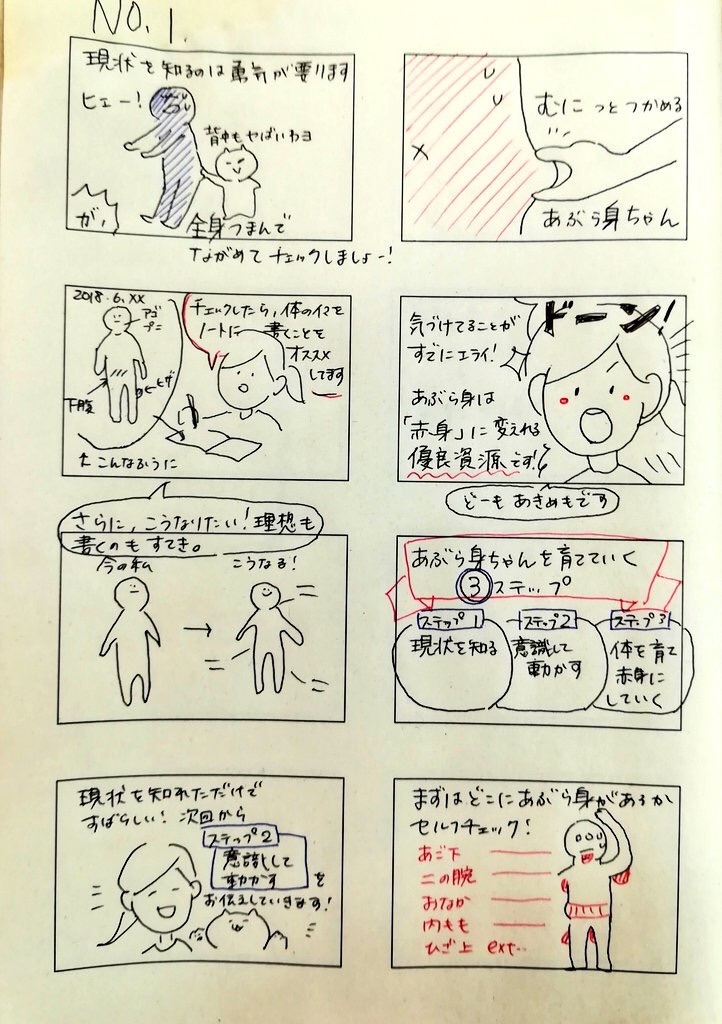 NO.1.
むにっとつかめる
あぶら身ちゃん
ドーン!
気づけてることが
すでにエライ!
あぶら身は
「赤身」に変えれる
優良資源です!
どーも あきめもです
あぶら身ちゃんを育てていく
③ステップ
ステップ1
現状を知る
ステップ2
意識して
動かす
ステップ3
体を育て
赤身に
していく
まずはどこにあぶら身があるか
セルフチェック!
あご下
二の腕
おなか
内もも
ひざ上 ext…
現状を知るのは勇気が要ります
ヒェー!
背中もやばいわヨ
が、
全身つまんで
ながめてチェックしましょー!
2018.6.XX
アゴ
プニ
ヒザ
下腹
↑こんなふうに
チェックしたら、体のイマを
ノートに書くことを
オススメ
してます
さらに、こうなりたい!理想も
書くのもすてき。
今の私
こうなる!
現状を知れただけで
すばらしい! 次回から
ステップ2
意識して
動かす を
お伝えしていきます!